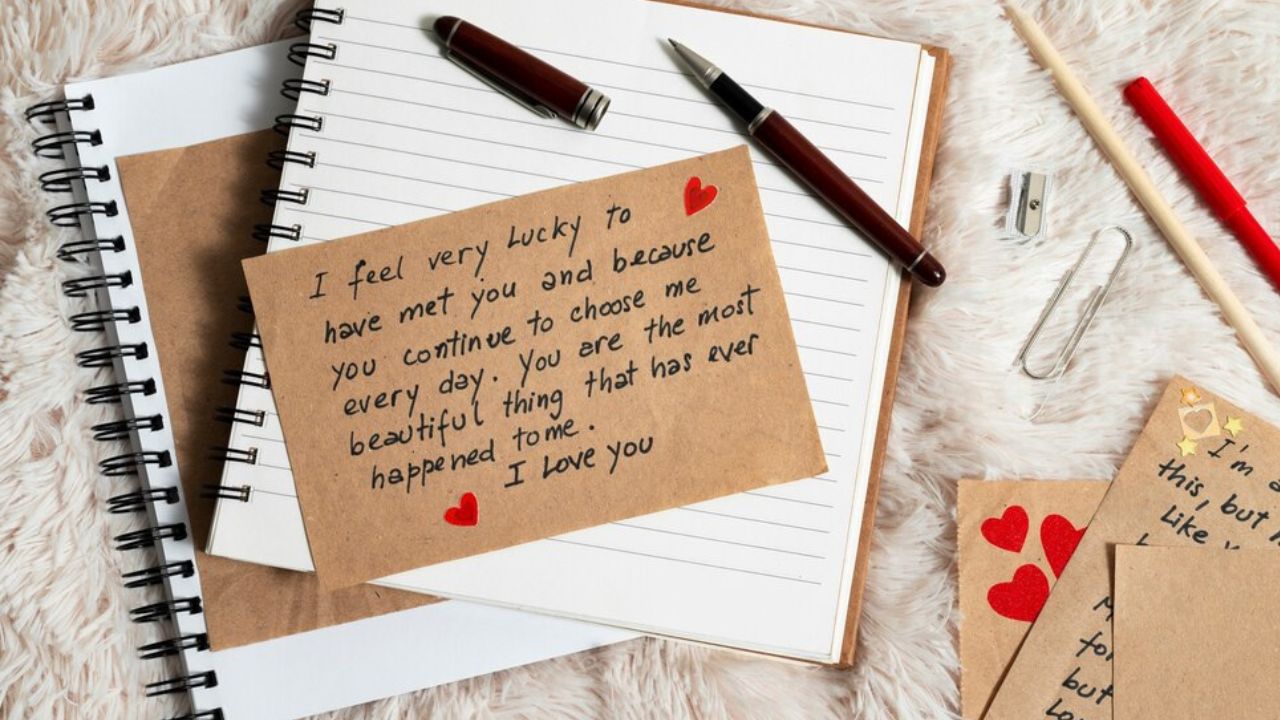 I feel very Lucky to
have met you and because
you continue to choose me
every day. You are the most
beautiful thing that has ever
happened to me.
I Love you
I'm a
this, but
Like
but